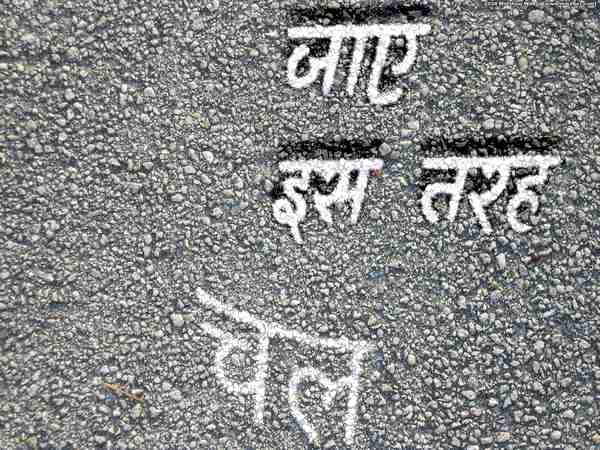 जाए
इस तरह
वेल